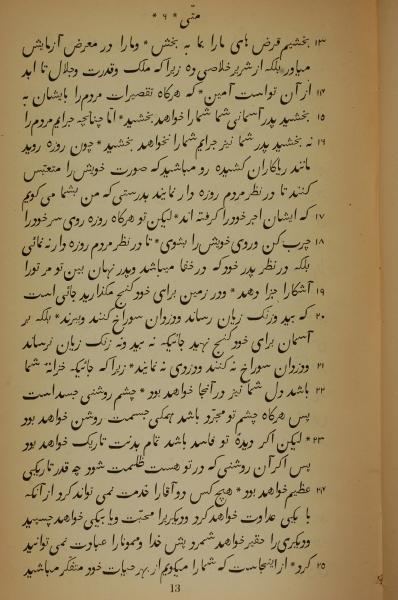 متّی * ۶ *
۱۳ بخشیم قرض های مارا بما به بخش * ومارا در معرض آزمایش
میاور بلکه از شریر خلاصی ده زیرا که ملک وقدرت وجلال تا ابد
۱۴ از آن تواست آمین * که هرکاه تقصیرات مردم را بایشان به
۱۵ بخشید پدر آسمانی شما شمارا خواهد بخشید * امّا چنانچه جرایم مردم را
۱۶ نه بخشید پدر شما نیز جرایم شمارا نخواهد بخشید * چون روزه روید
مانند ریاکاران کشیده رو مباشید که صورت خویش را متعبّس
کنند تا در نظر مردم روزه دار نمایند بدرستی که من بشما می کویم
۱۷ که ایشان اجر خودرا کرفته اند * لیکن تو هرکاه روزه روی سر خودرا
۱۸ چرب کن وروی خویش را بشوی * تا در نظر مردم روزه دار نه نمائی
بلکه در نظر پدر خود که در خفا میباشد وپدر نهان بین تو مر تورا
۱۹ آشکارا جزا دهد * ودر زمین برای خود کنج مکذارید جائی است
۲۰ که بید وزنک زیان رساند ودزدان سوراخ کنند وبرند * بلکه بر
آسمان برای خود کنج نهید جائیکه نه بید ونه زنک زیان نرساند
۲۱ ودزدان سوراخ نه کنند ودزدی نه نمایند * زیرا که جائیکه خزانهٔ شما
۲۲ باشد دل شما نیز در آنجا خواهد بود * چشم روشنی جسد است
پس هرکاه چشم تو مجرّد باشد همکی جسمت روشن خواهد بود
۲۳ * لیکن اکر دیدهٔ تو فاسد باشد تمام بدنت تاریک خواهد بود
پس اکر آن روشنی که در تو هست ظلمت شود چه قدر تاریکی
۲۴ عظیم خواهد بود * هیچ کس دو آقارا خدمت نمی تواند کرد از آنکه
با یکی عداوت خواهد کرد ودیکریرا محبّت ویا بیکی خواهد چسپید
ودیکریرا حقیر خواهد شمرد پس خدا وممونارا عبادت نمی توانید
۲۵ کرد * از اینجاست که شمارا میکویم از بهر حیات خود متفکّر مباشید
13